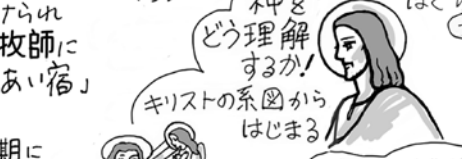 けられ
牧師に
あい宿」
期に
神を
どう理解
するか！
キリストの系図から
はじまる